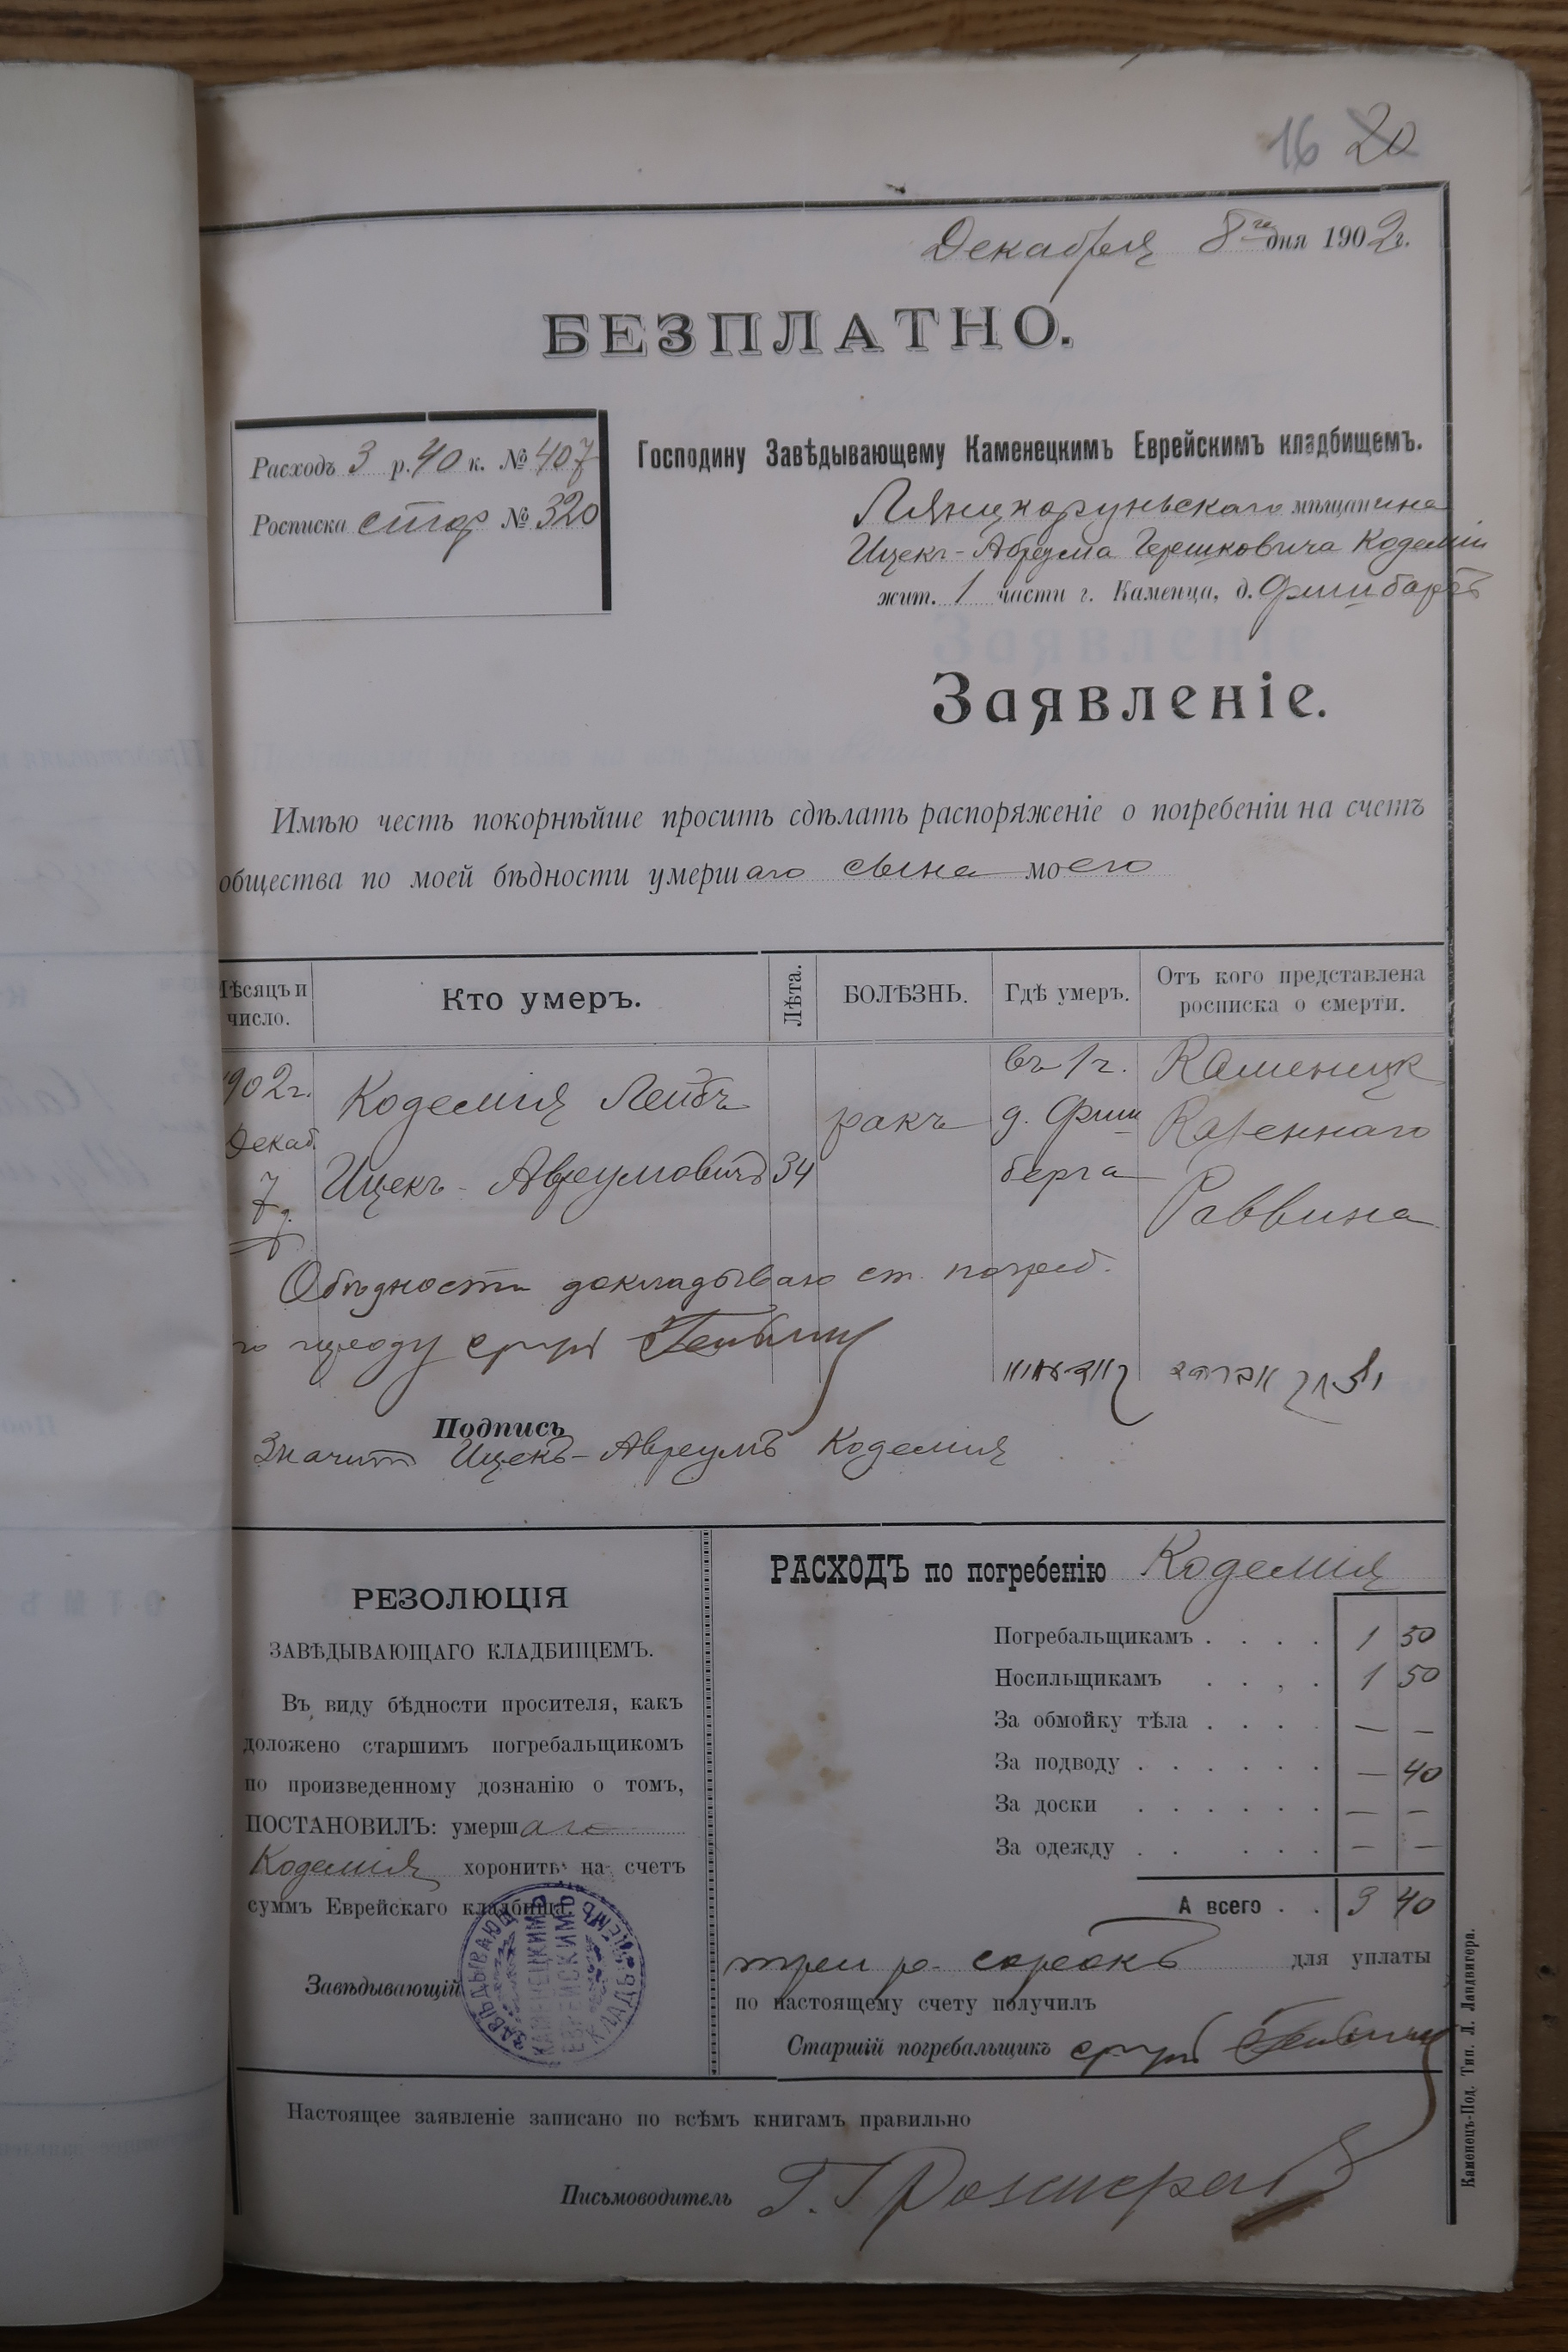 16 20
Декабря 8го дня 1902 г.
БЕЗПЛАТНО.
Расходъ 3 р. 40 к. № 407
Росписка стар № 320
Господину Завѣдывающему Каменецкимъ Еврейскимъ кладбищемъ.
Лянцкоруньскаго мѣщанина
Ицекъ-Авреума Гершковича Кодемія
жит. 1 части г. Каменца, д. Фишберг
Заявленіе.
Имѣю честь покорнѣйше просить сдѣлать распоряженіе о погребеніи на счетъ
общества по моей бѣдности умершаго сына моего
Мѣсяцъ и число. Кто умеръ. Лѣта. БОЛѢЗНЬ. Гдѣ умеръ. Отъ кого представлена росписка о смерти.
1902 г. Кодемія Лейбъ въ 1 ч. Каменецк
Декаб. ракъ д. Фиш Казеннаго
7 д. Ицекъ-Авреумовичъ 34 берга Раввина
О бѣдности докладываю ст. погреб.
Подпись
Значитъ Ицекъ-Авреумъ Кодемія
РЕЗОЛЮЦІЯ
ЗАВѢДЫВАЮЩАГО КЛАДБИЩЕМЪ.
Въ виду бѣдности просителя, какъ
доложено старшимъ погребальщикомъ
по произведенному дознанію о томъ,
ПОСТАНОВИЛЪ: умершаго
Кодемія хоронить на счетъ
суммъ Еврейскаго кладбища.
Завѣдывающій
ЗАВѢДЫВАЮЩ. КАМЕНЕЦКИМЪ ЕВРЕЙСКИМЪ КЛАДБИЩЕМЪ
РАСХОДЪ по погребенію Кодемія
Погребальщикамъ . . . . 1 50
Носильщикамъ . . , . 1 50
За обмойку тѣла . . . . — —
За подводу . . . . . . — 40
За доски . . . . . . — —
За одежду . . . . . — —
А всего . . 3 40
три р. сорокъ для уплаты
по настоящему счету получилъ
Старшій погребальщикъ
Настоящее заявленіе записано по всѣмъ книгамъ правильно
Письмоводитель
Каменецъ-Под. Тип. Л. Ландвигера.